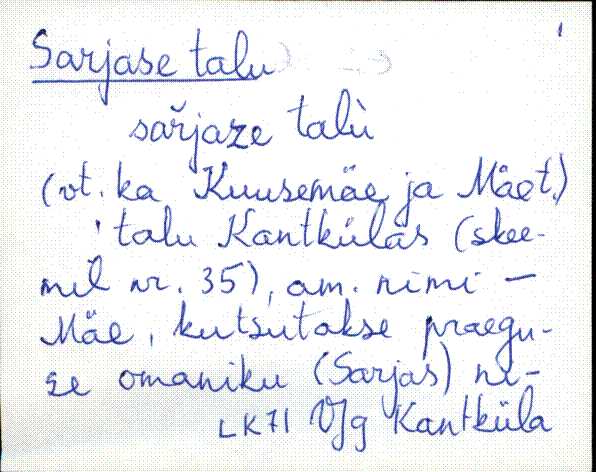 Sarjase talu
saŕjaze talù
(vt. ka Kuusemäe ja Mäet.)
talu Kantkülas (skee-
mil nr. 35), am. nimi -
Mäe, kutsutakse praegu-
se omaniku (Sarjas) ni-
LK71 VJg Kantküla